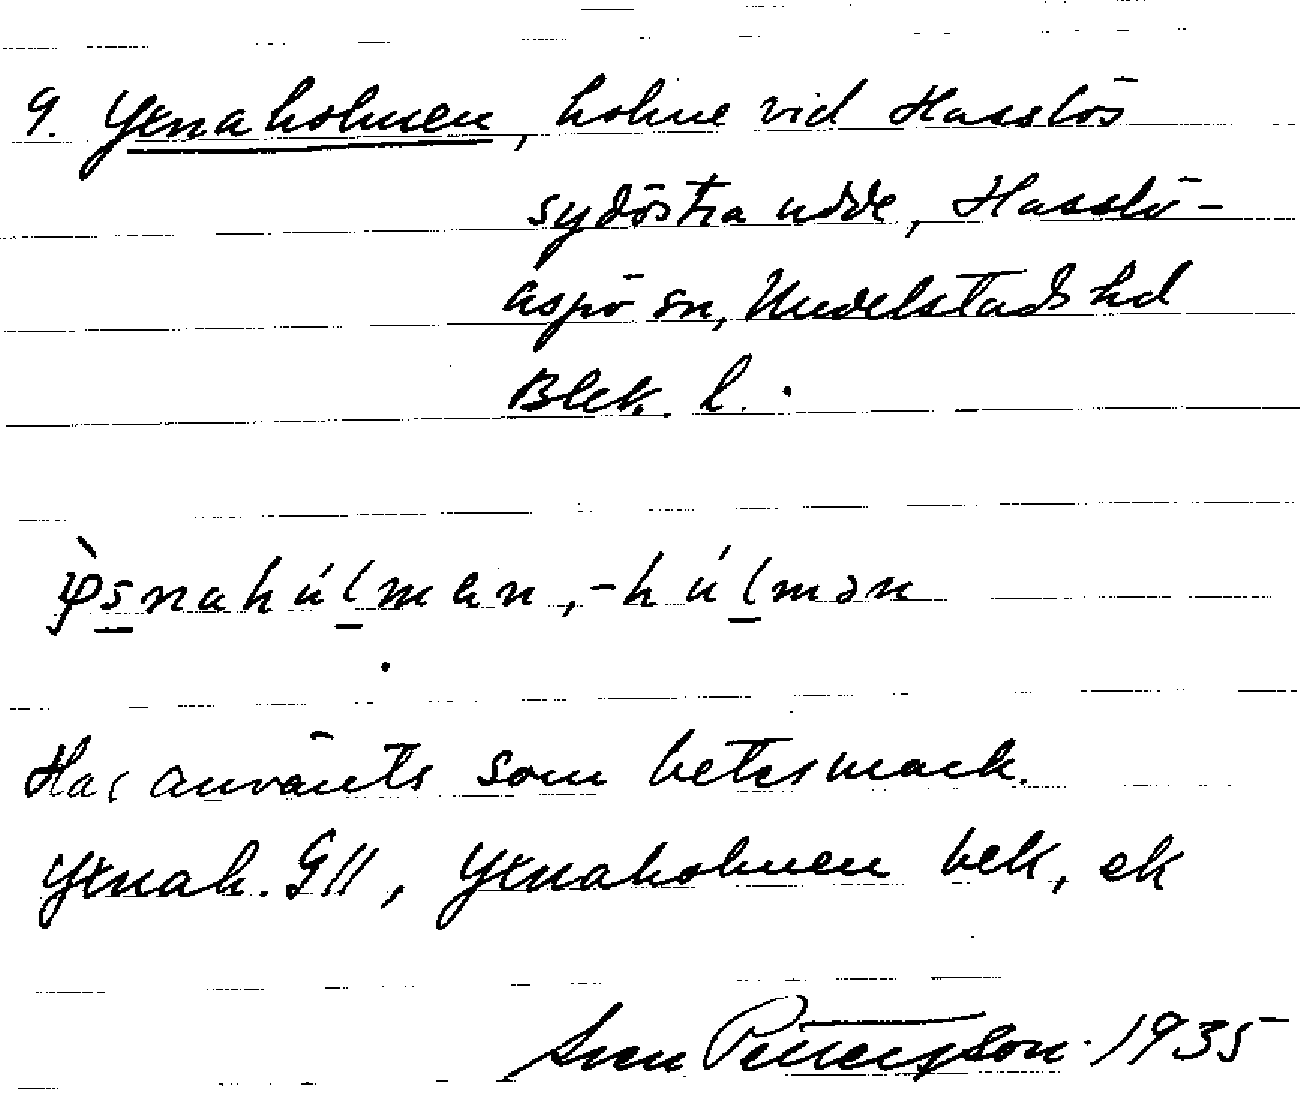 9. Yxnaholmen, holme vid Hasslös
sydöstra udde, Hasslö-
Aspö sn, Medelstads hd
Blek. l.
ỳsnahúlmɐn, -húlmən
Har använts som betesmark.
Yxnah. GK, Yxnaholmen bek, ek
Sven Pettersson 1935